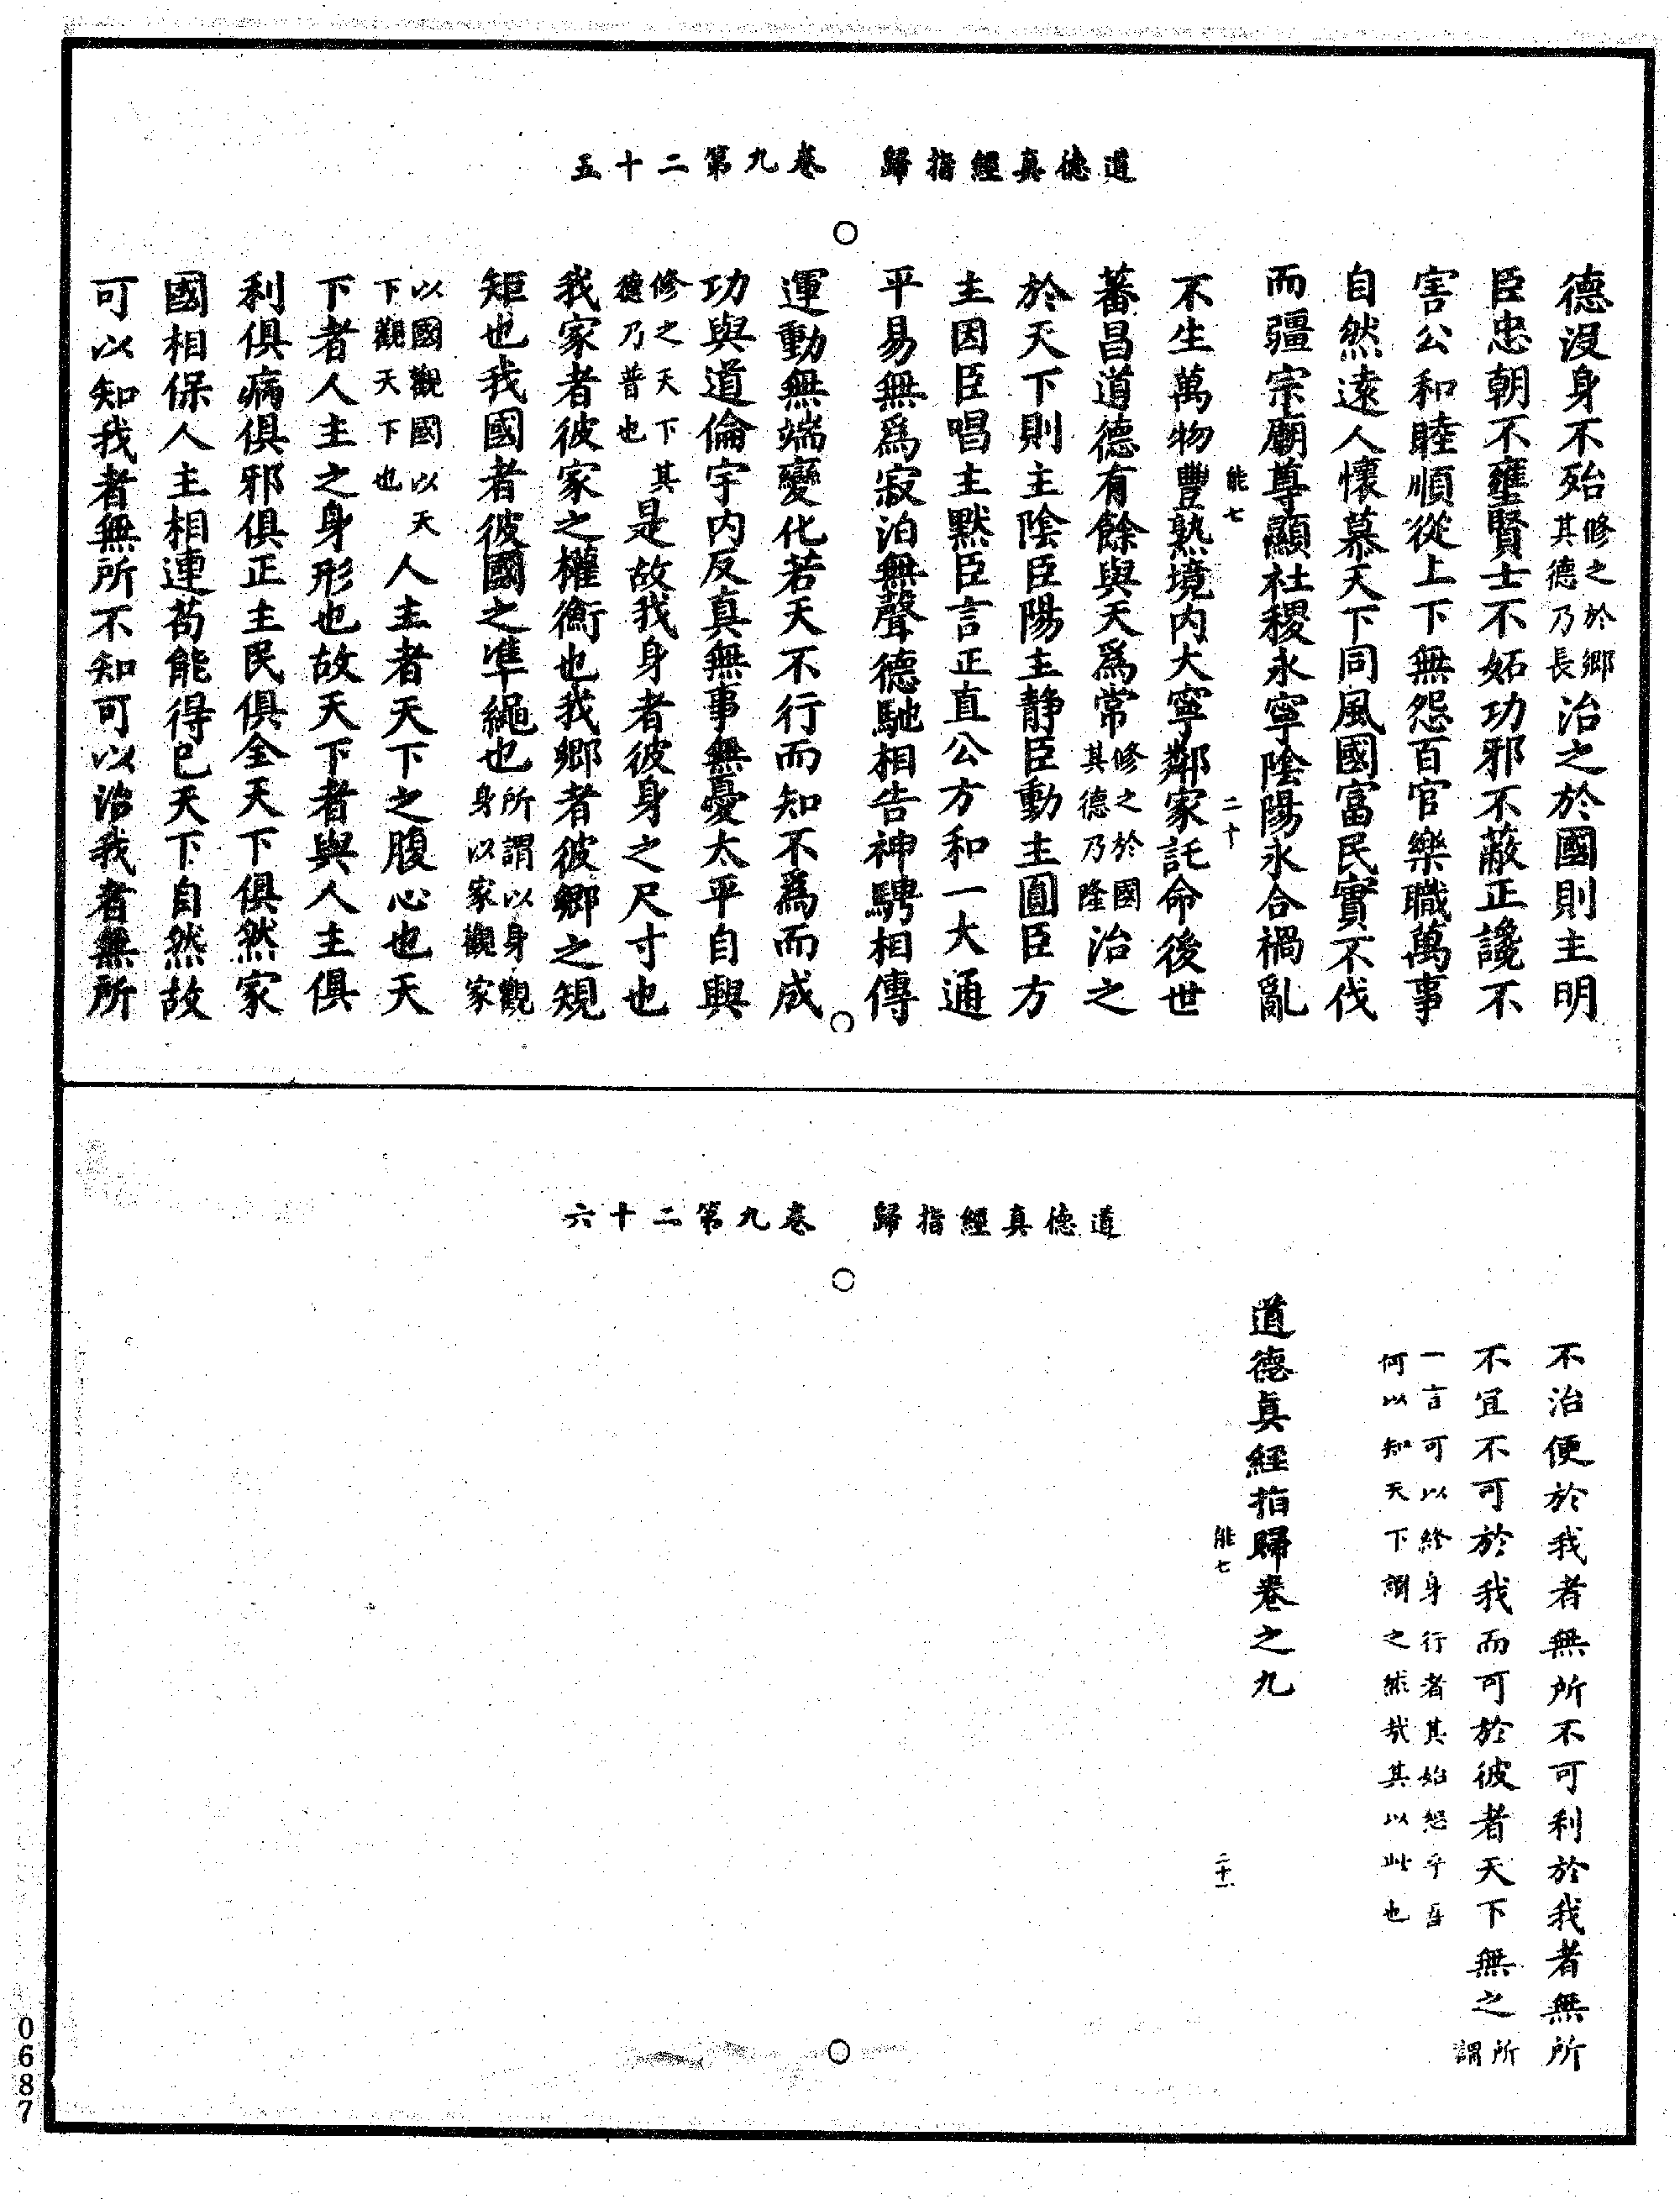 道德真經指歸　卷九第二十五
德沒身不殆修之於鄉其德乃長治之於國則主明
臣忠朝不壅賢士不妬功邪不蔽正讒不
害公和睦順從上下無怨百官樂職萬事
自然遠人懷慕天下同風國富民實不伐
而疆宗廟尊顯社稷永寧陰陽永合禍亂
能七　二十
不生萬物豐熟境内大寧鄰家託命後世
蕃昌道德有餘與天爲常修之於國其德乃隆治之
於天下則主陰臣陽主静臣動主圓臣方
主因臣唱主默臣言正直公方和一大通
平易無爲寂泊無聲德馳相告神騁相傳
運動無端變化若天不行而知不爲而成
功與道倫宇内反真無事無憂太平自興
修之天下其德乃普也是故我身者彼身之尺寸也
我家者彼家之權衡也我鄉者彼鄉之規
矩也我國者彼國之凖繩也所謂以身觀身以家觀家
以國觀國以天下觀天下也人主者天下之腹心也天
下者人主之身形也故天下者與人主俱
利俱病俱邪俱正主民俱全天下俱然家
國相保人主相連苟能得已天下自然故
可以知我者無所不知可以治我者無所
道德真經指歸　卷九第二十六
不治便於我者無所不可利於我者無所
不宜不可於我而可於彼者天下無之所謂
一言可以終身行者其始恕乎吾
何以知天下謂之然哉其以此也
道德真經指歸卷之九
能七　二十一
0687